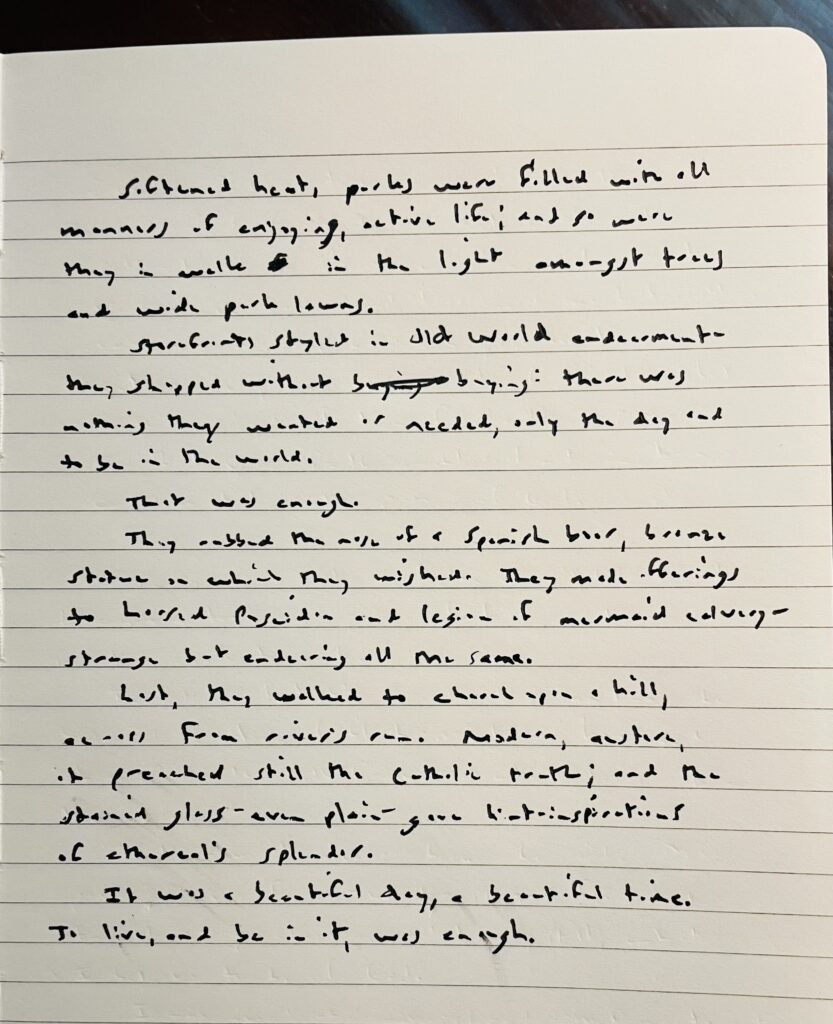 Softened heat, parks were filled with all
manners of enjoying, active life; and so were
they in walk in the light amongst trees
and wide park lawns.
Storefronts styled in old world endearment-
they shopped without buying buying: there was
nothing they wanted or needed, only the day and
to be in the world.
That was enough.
They rubbed the nose of a Spanish boar, bronze
statue on which they wished. They made offerings
to horsed Poseidon and legion of mermaid calvary-
strange but endearing all the same.
Last, they walked to church upon a hill,
across from river's run. Modern, austere,
it preached still the Catholic truth; and the
stained glass-even plain-gave hint-inspirations
of ethereal's splendor.
It was a beautiful day, a beautiful time.
To live, and be in it, was enough.